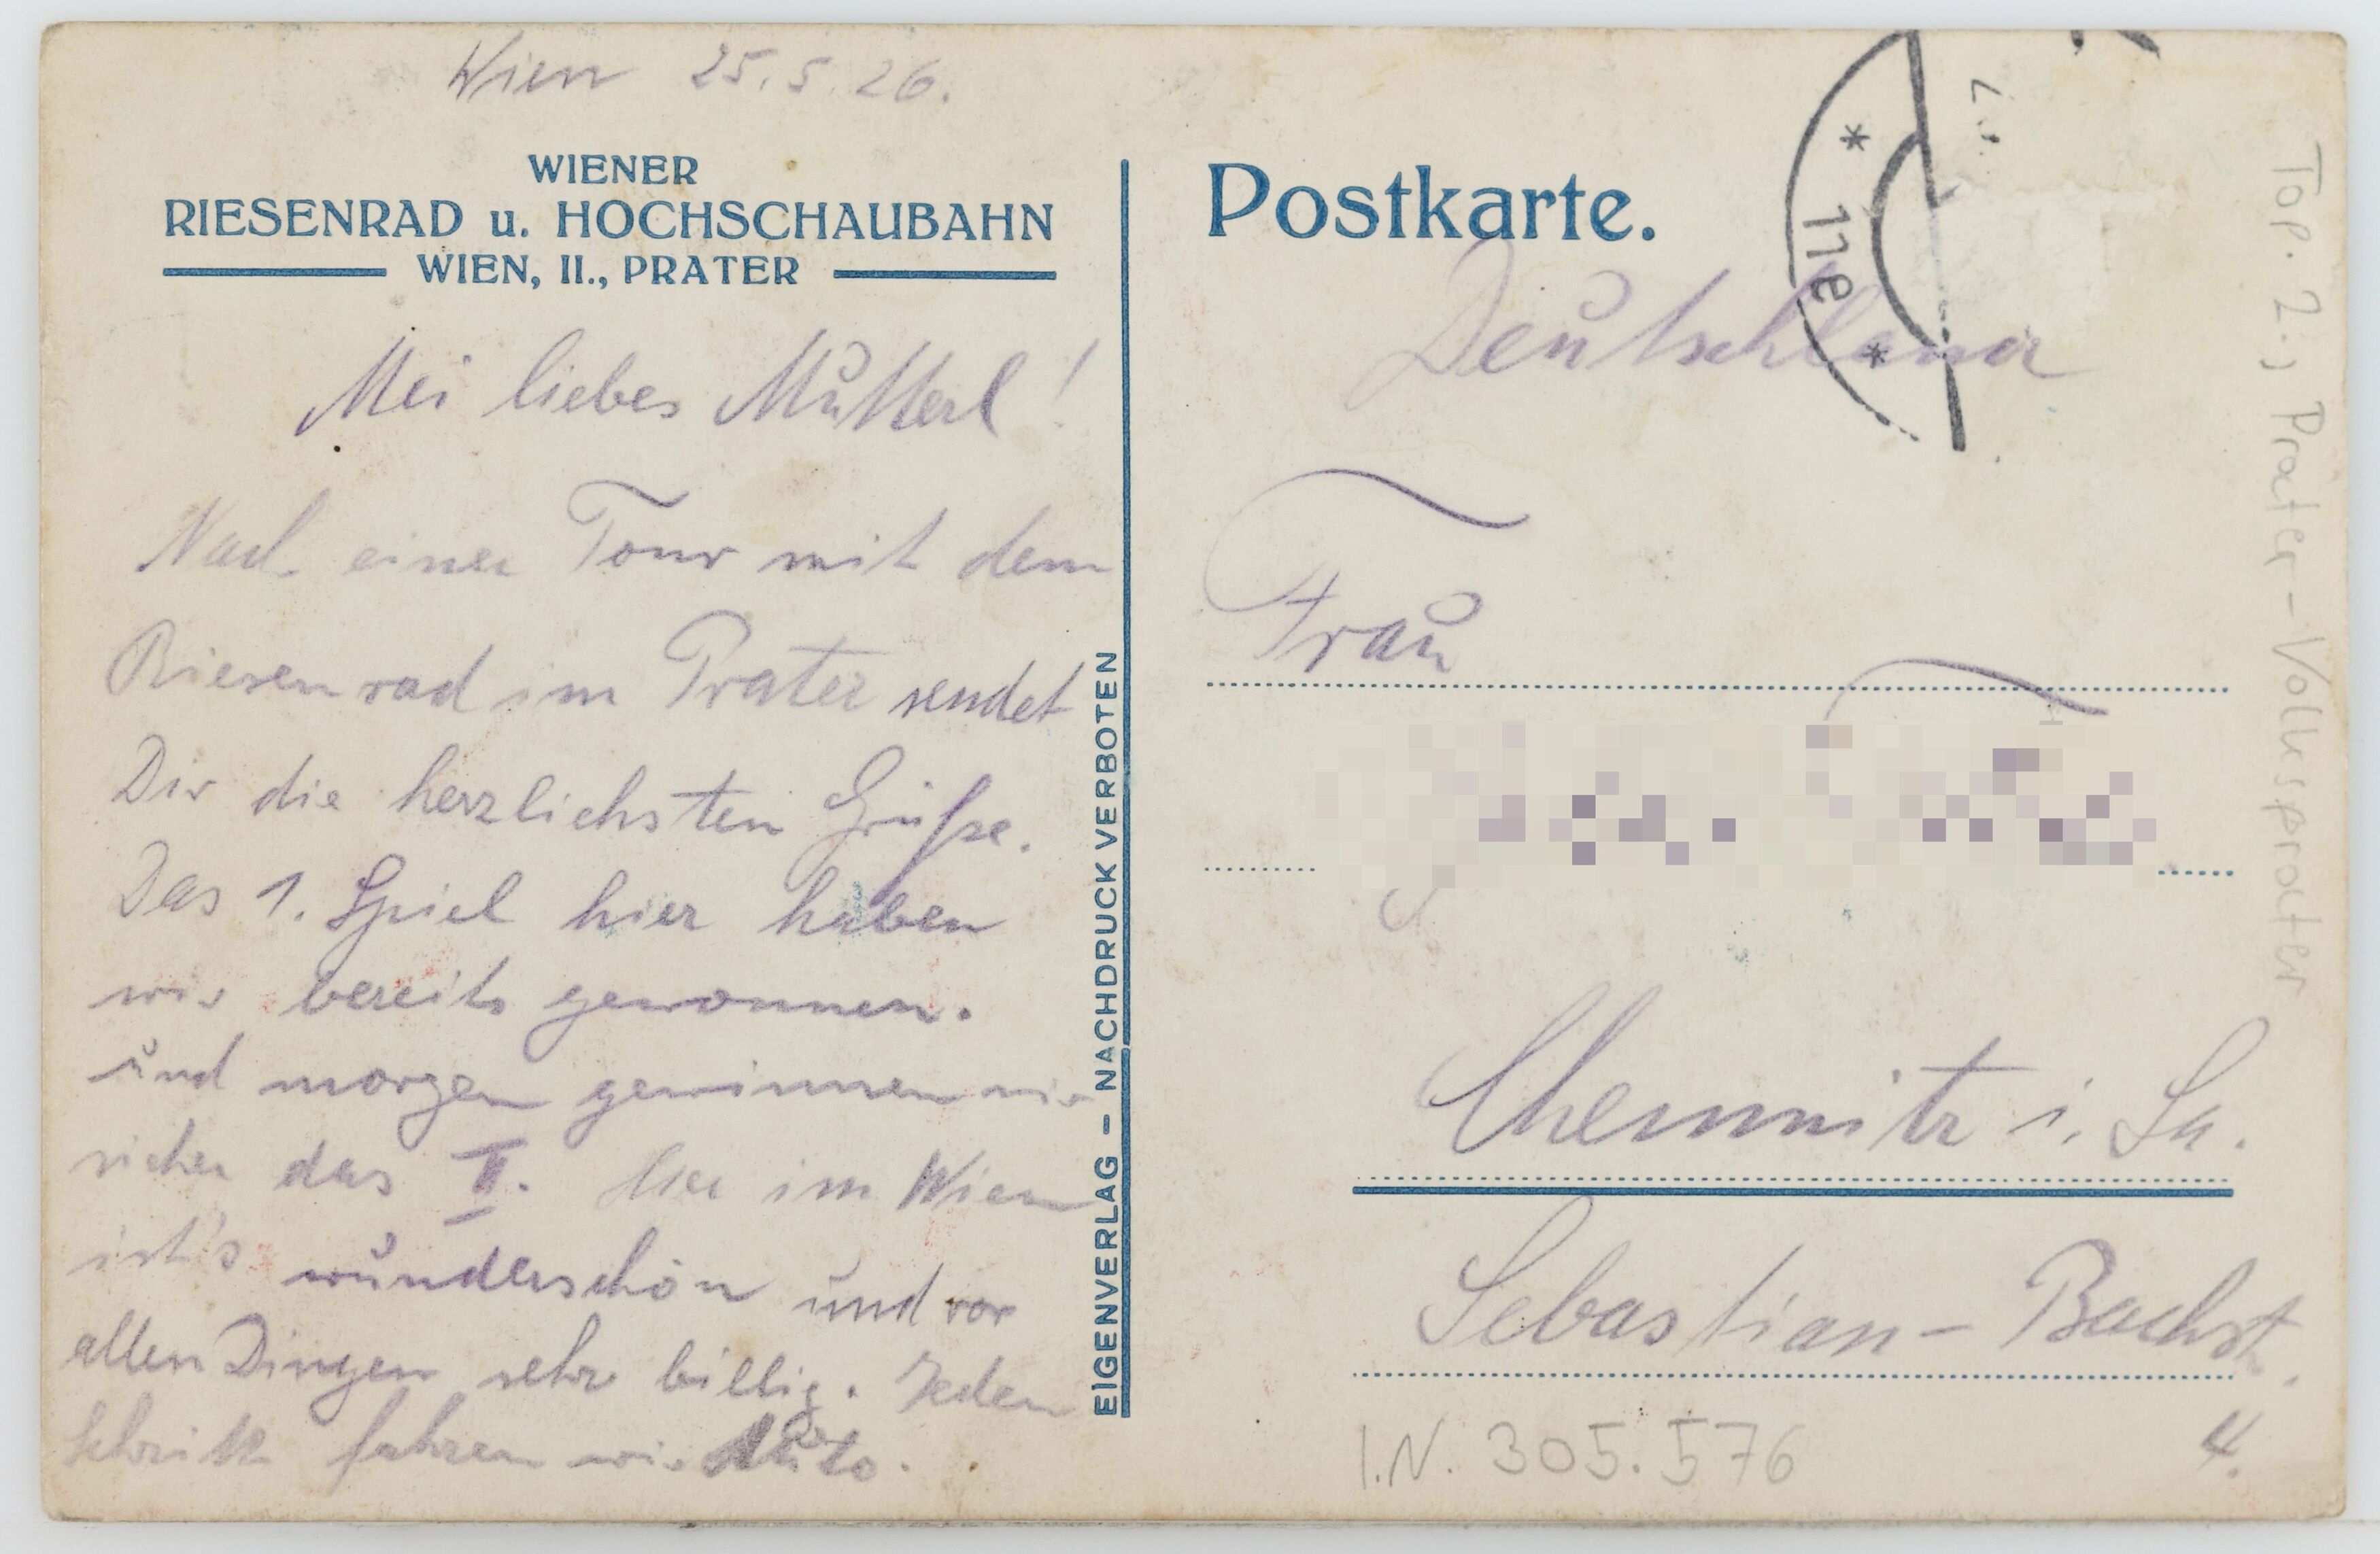 Wien 25.5.26.
WIENER
RIESENRAD u. HOCHSCHAUBAHN
WIEN, II., PRATER
Mei liebes Mutterl!
Nach einer Tour mit dem
Riesenrad im Prater sendet
Dir die herzlichsten Grüße.
Das 1. Spiel hier haben
wir bereits gewonnen.
und morgen gewinnen wir
sicher das II. Hier im Wien
ist's wunderschön und vor
allen Dingen sehr billig. Jeden
Schritt fahren wir Auto.
EIGENVERLAG – NACHDRUCK VERBOTEN
Postkarte.
* 11e *
Deutschland
Frau
Chemnitz i. Sa.
Sebastian-Bachst.
4.
I.N. 305.576
Top. 2., Prater-Volksprater